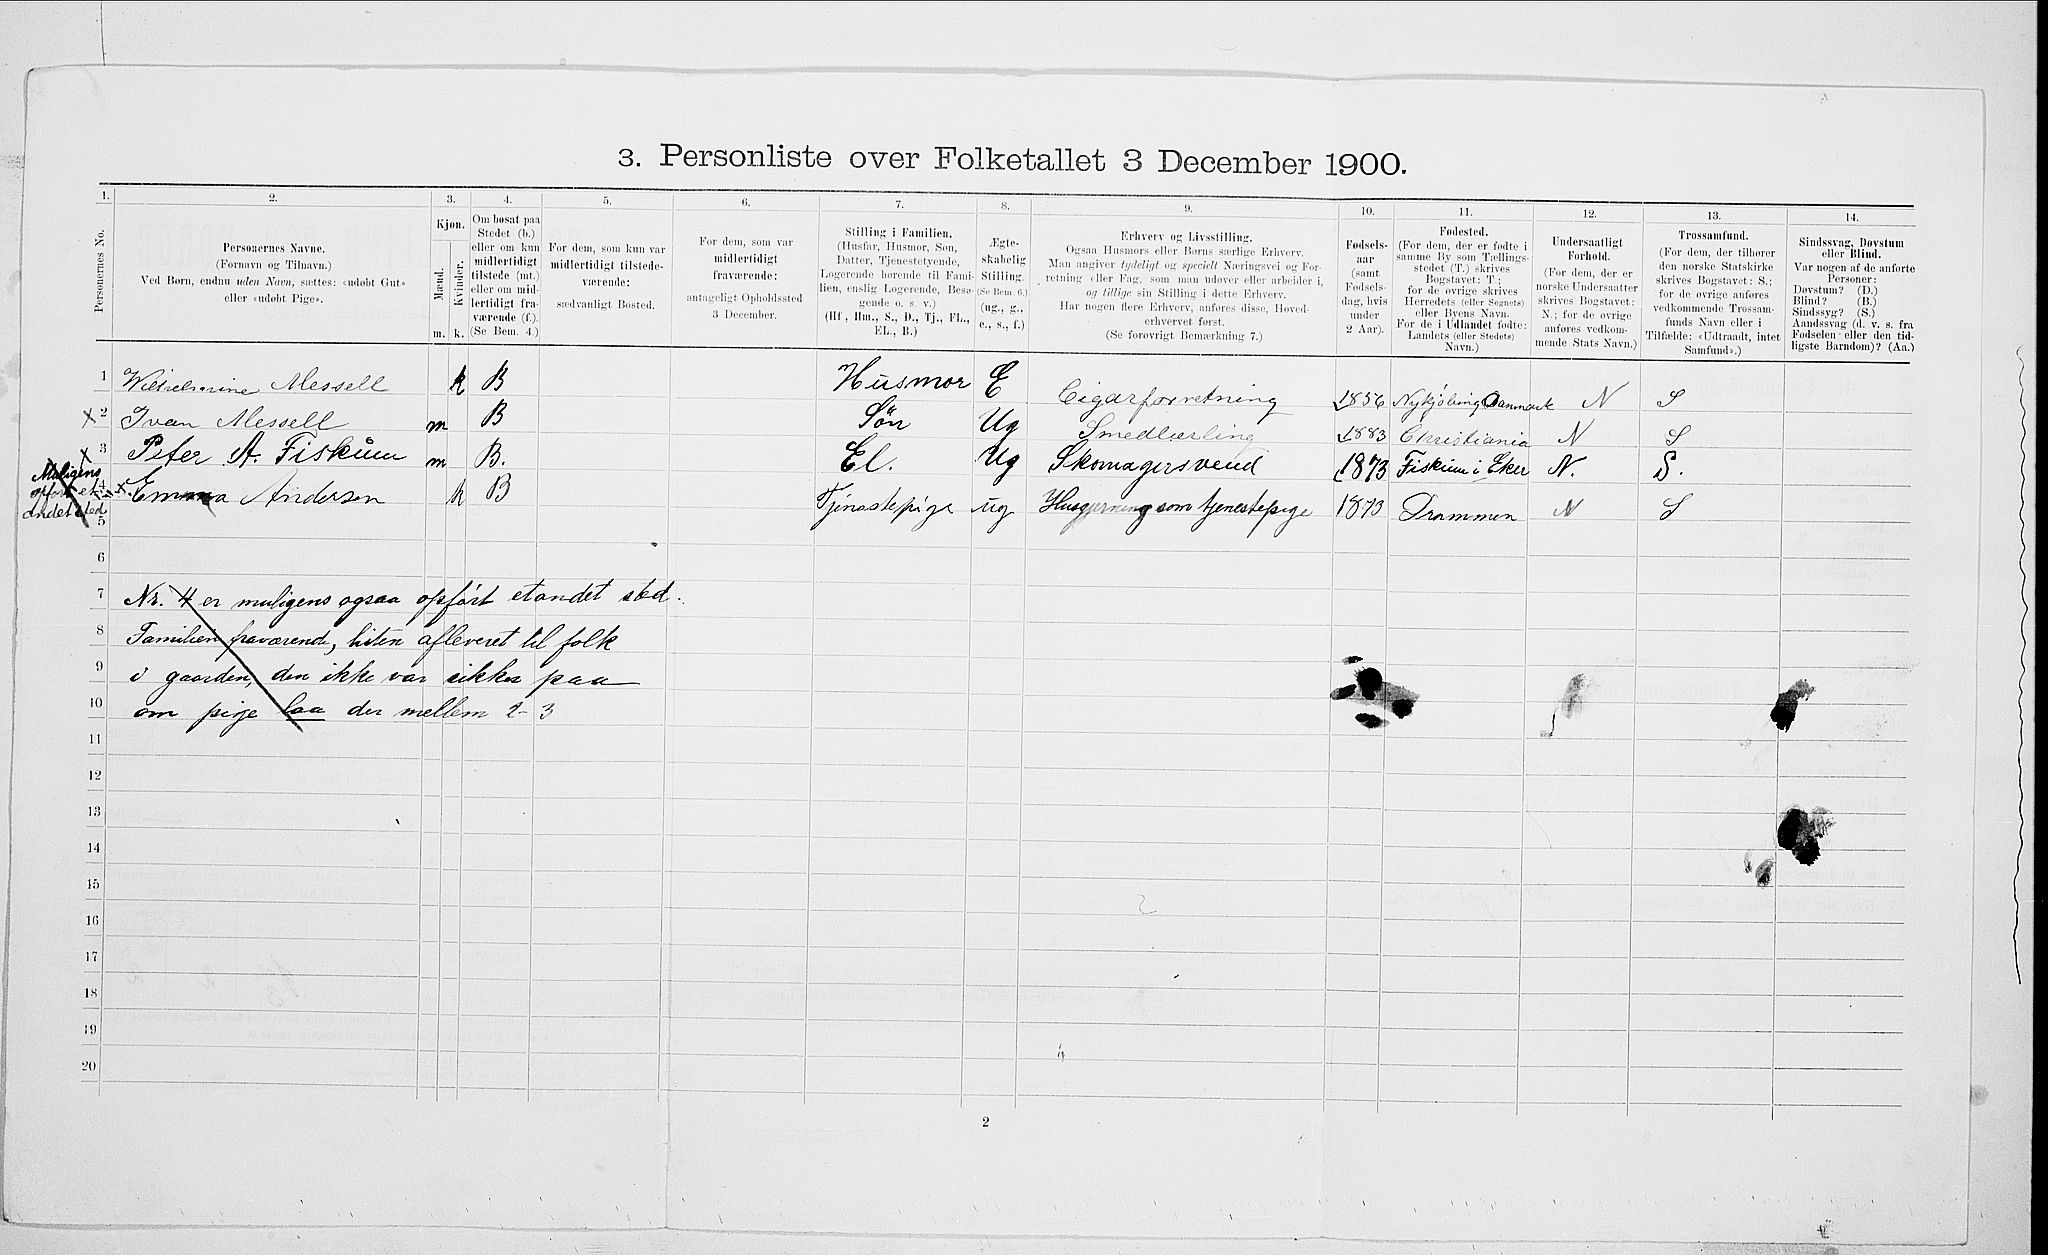 3. Personliste over Folketallet 3 December 1900.
1. 2. 3. 4. 5. 6. 7. 8. 9. 10. 11. 12. 13. 14.
Personernes No.
Personernes Navne.
(Fornavn og Tilnavn.)
Ved Børn, endnu uden Navn, sættes: «udøbt Gut»
eller «udøbt Pige».
Kjøn.
Mænd.
Kvinder.
m. k.
Om bosat paa
Stedet (b.)
eller om kun
midlertidigt
tilstede (mt.)
eller om mid-
lertidigt fra-
værende (f.).
(Se Bem. 4.)
For dem, som kun var
midlertidigt tilstede-
værende:
sædvanligt Bosted.
For dem, som var
midlertidigt
fraværende:
antageligt Opholdssted
3 December.
Stilling i Familien.
(Husfar, Husmor, Søn,
Datter, Tjenestetyende,
Logerende hørende til Fami-
lien, enslig Logerende, Besø-
gende o. s. v.)
(Hf, Hm., S., D., Tj., FL.,
EL., B.)
Ægte-
skabelig
Stilling.
(Se Bem. 6.)
(ug., g.,
e., s., f.)
Erhverv og Livsstilling.
Ogsaa Husmors eller Børns særlige Erhverv.
Man angiver tydeligt og specielt Næringsvei og For-
retning eller Fag, som man udøver eller arbeider i,
og tillige sin Stilling i dette Erhverv.
Har nogen flere Erhverv, anføres disse, Hoved-
erhvervet først.
(Se forøvrigt Bemærkning 7.)
Fødsels-
aar
(samt
Fødsels-
dag, hvis
under
2 Aar).
Fødested.
(For dem, der er fødte i
samme By som Tællings-
stedet (T.) skrives
Bogstavet: T.;
for de øvrige skrives
Herredets (eller Sognets)
eller Byens Navn.
For de i Udlandet fødte:
Landets (eller Stedets)
Navn.)
Undersaatligt
Forhold.
(For dem, der er
norske Undersaatter
skrives Bogstavet:
N.; for de øvrige
anføres vedkom-
mende Stats Navn.)
Trossamfund.
(For dem, der tilhører
den norske Statskirke
skrives Bogstavet: S.;
for de øvrige anføres
vedkommende Trossam-
funds Navn eller i
Tilfælde: «Udtraadt, intet
Samfund».)
Sindssvag, Døvstum
eller Blind.
Var nogen af de anførte
Personer:
Døvstum? (D.)
Blind? (B.)
Sindssyg? (S.)
Aandssvag (d. v. s. fra
Fødselen eller den tid-
ligste Barndom)? (Aa.)
1 Wilhelmine Messell k B Husmor E Cigarforretning 1856 Nykjöbing Danmark N S
x 2 Ivan Messell m B Sön Ug Smedlærling 1883 Christiania N S
x 3 Peter A. Fiskum m B. El. Ug Skomagersvend 1873 Fiskum i Eker N. S.
4 x. Emma Andersen k B Tjenestepige ug Husgjerning som tjenestepige 1873 Drammen N S
Muligens
opført et
andet sted
5
6
7 Nr. 4 er muligens ogsaa opført et andet sted.
8 Familien fraværende, listen afleveret til folk
9 i gaarden, den ikke var sikker paa
10 om pige laa der mellem 2-3
11
12
13
14
15
16
17
18
19
20
2